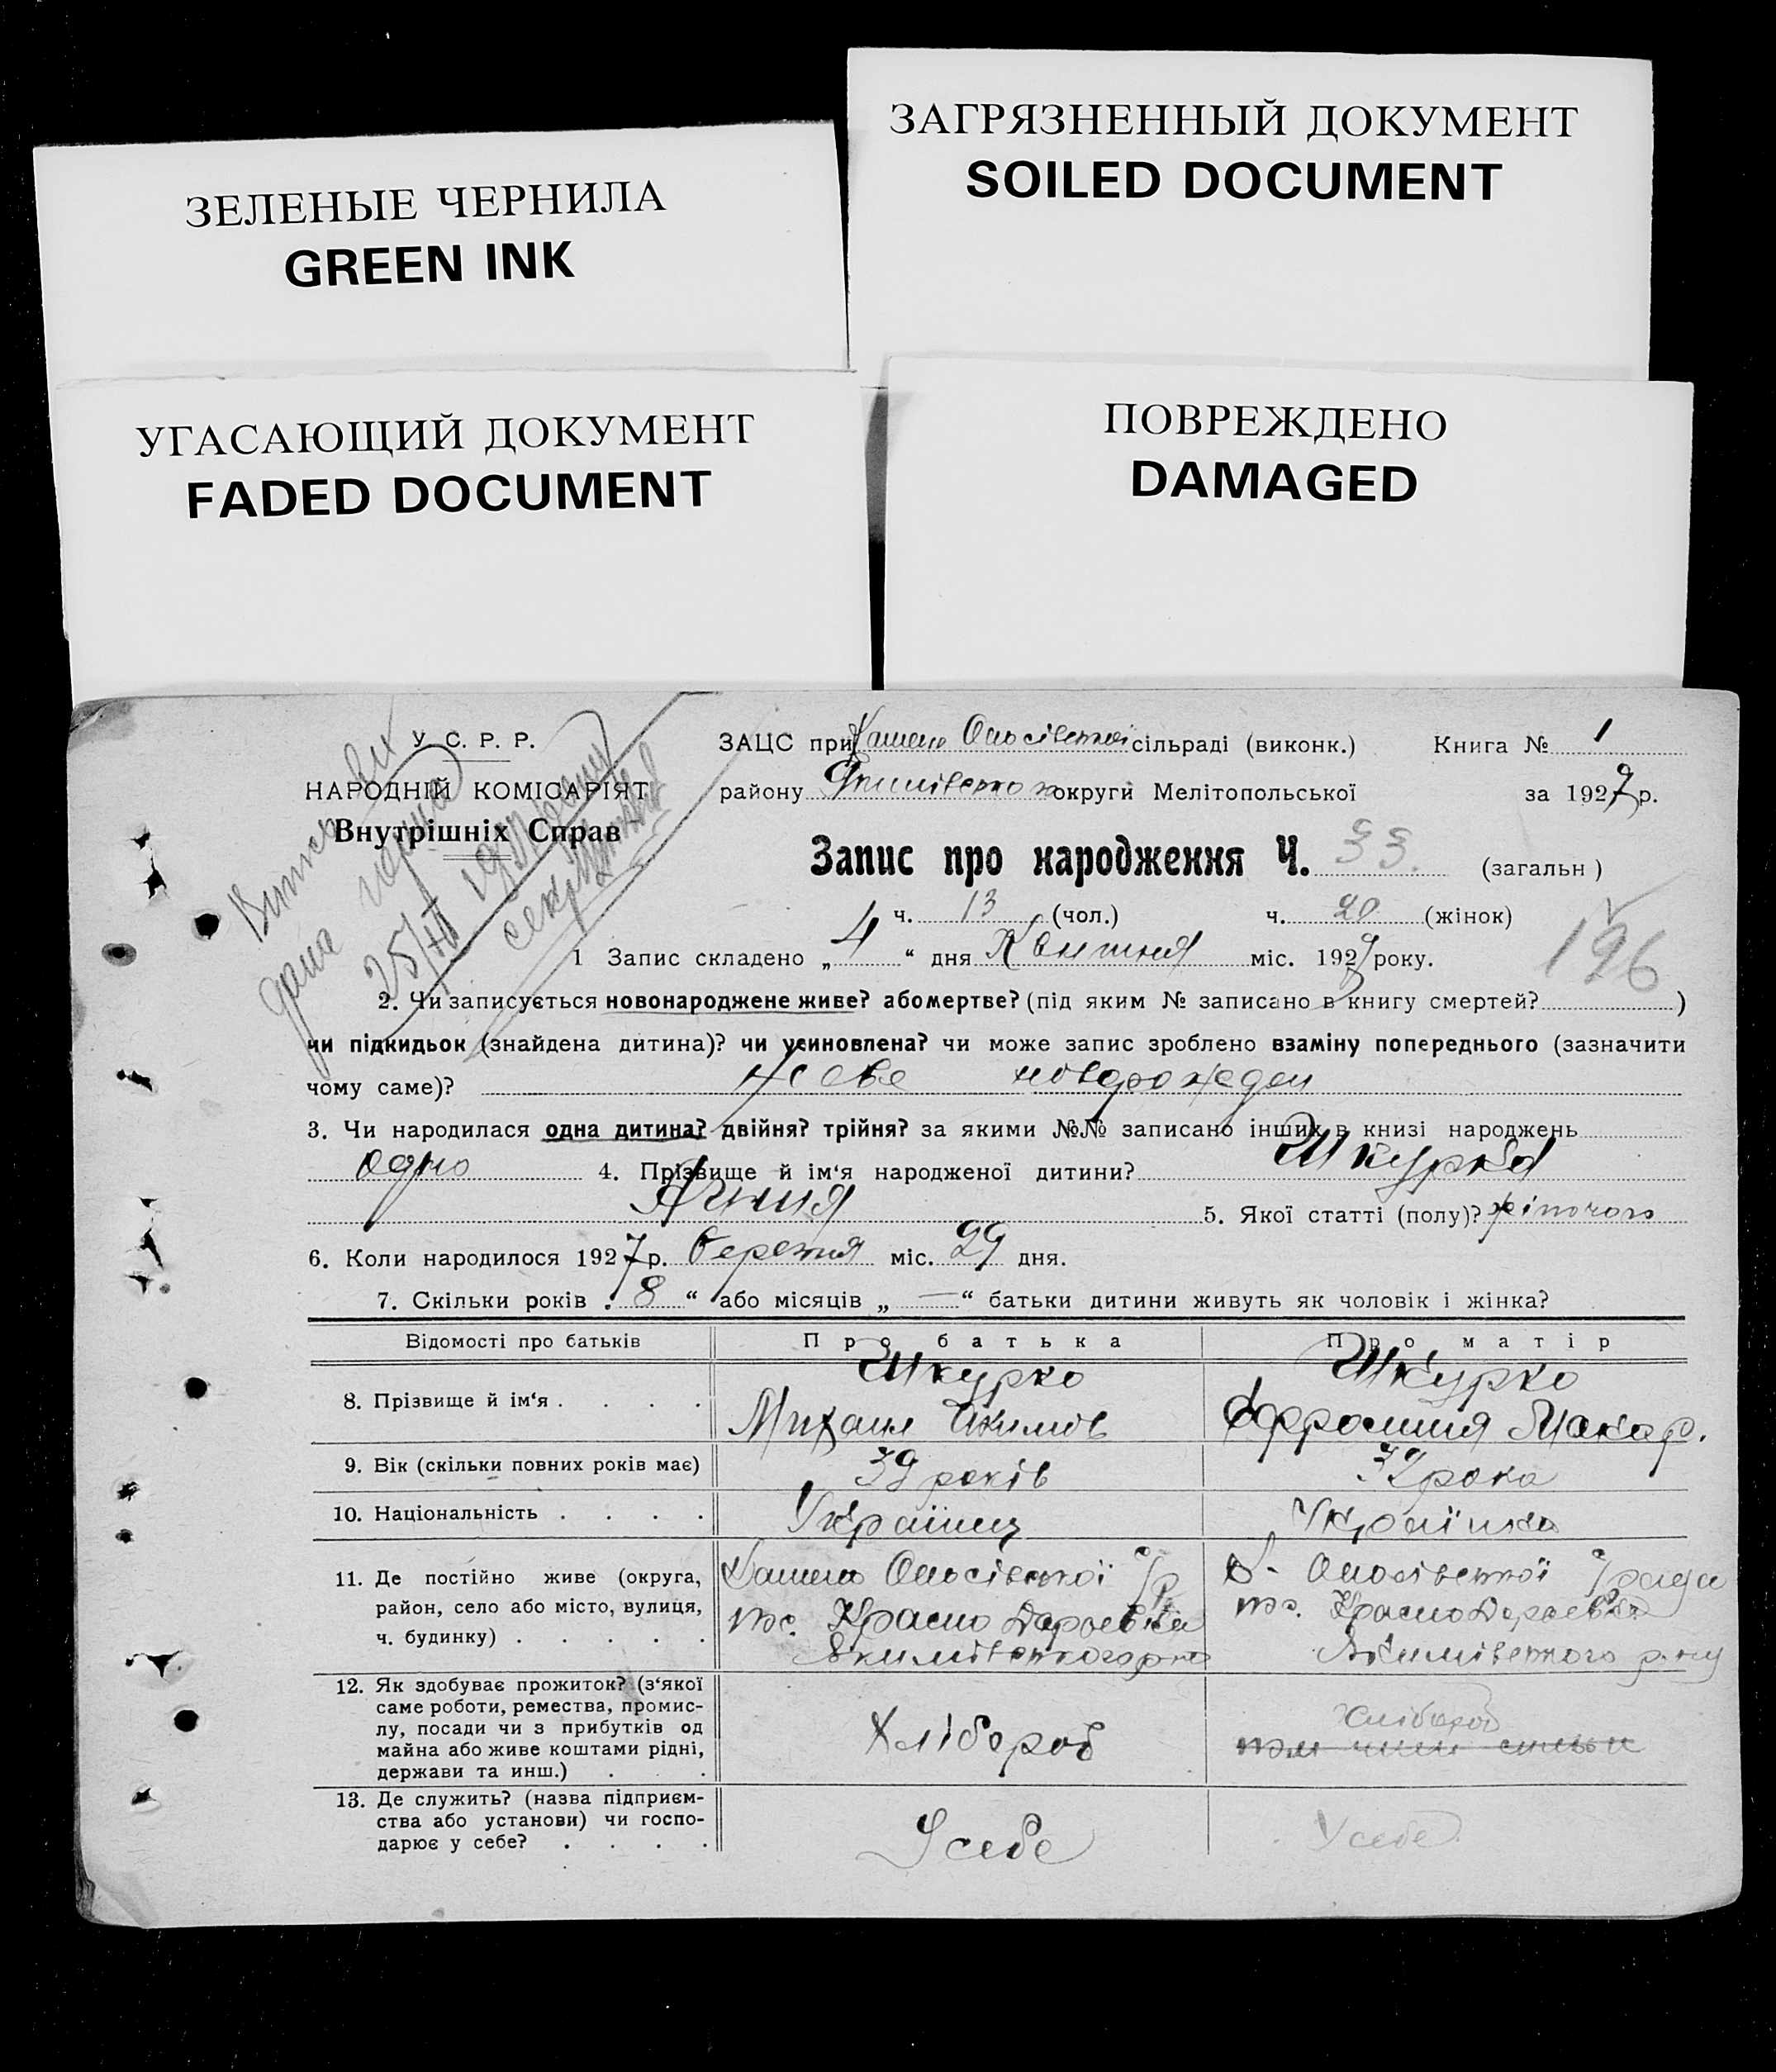 ЗАГРЯЗНЕННЫЙ ДОКУМЕНТ
SOILED DOCUMENT
ЗЕЛЕНЫЕ ЧЕРНИЛА
GREEN INK
УГАСАЮЩИЙ ДОКУМЕНТ
FADED DOCUMENT
ПОВРЕЖДЕНО
DAMAGED
У. С. Р. Р.
НАРОДНІЙ КОМІСАРІЯТ
Внутрішніх Справ
ЗАЦС при сільраді (виконк.) Книга № 1
району округи Мелітопольської за 1927 р.
Запис про народження Ч. 33. (загальн )
ч. 13 (чол.) ч. 20 (жінок)
196
1 Запис складено „ 4 “ дня Квитня міс. 1927 року.
2. Чи записується новонароджене живе? або мертве? (під яким № записано в книгу смертей? )
чи підкидьок (знайдена дитина)? чи усиновлена? чи може запис зроблено взаміну попереднього (зазначити
чому саме)? живе
3. Чи народилася одна дитина? двійня? трійня? за якими №№ записано інших в книзі народжень
одно 4. Прізвище й ім‘я народженої дитини? Шкурко
Агния 5. Якої статті (полу)? жіночого
6. Коли народилося 1927 р. березня міс. 29 дня.
7. Скільки років „ 8 “ або місяців „ — “ батьки дитини живуть як чоловік і жінка?
Відомості про батьків Про батька Про матір
8. Прізвище й ім‘я . . . . Шкурко Шкурко
Михаил Якимов Ефросиния Макар.
9. Вік (скільки повних років має) 39 років 32 рока
10. Національність . . . . Українец Українка
11. Де постійно живе (округа,
район, село або місто, вулиця,
ч. будинку) . . . . .
12. Як здобуває прожиток? (з‘якої
саме роботи, ремества, промис-
лу, посади чи з прибутків од
майна або живе коштами рідні,
держави та инш.) . .
Хлібороб Хлібороб
13. Де служить? (назва підприєм-
ства або установи) чи госпо-
дарює у себе? . . . .
У себе У себе